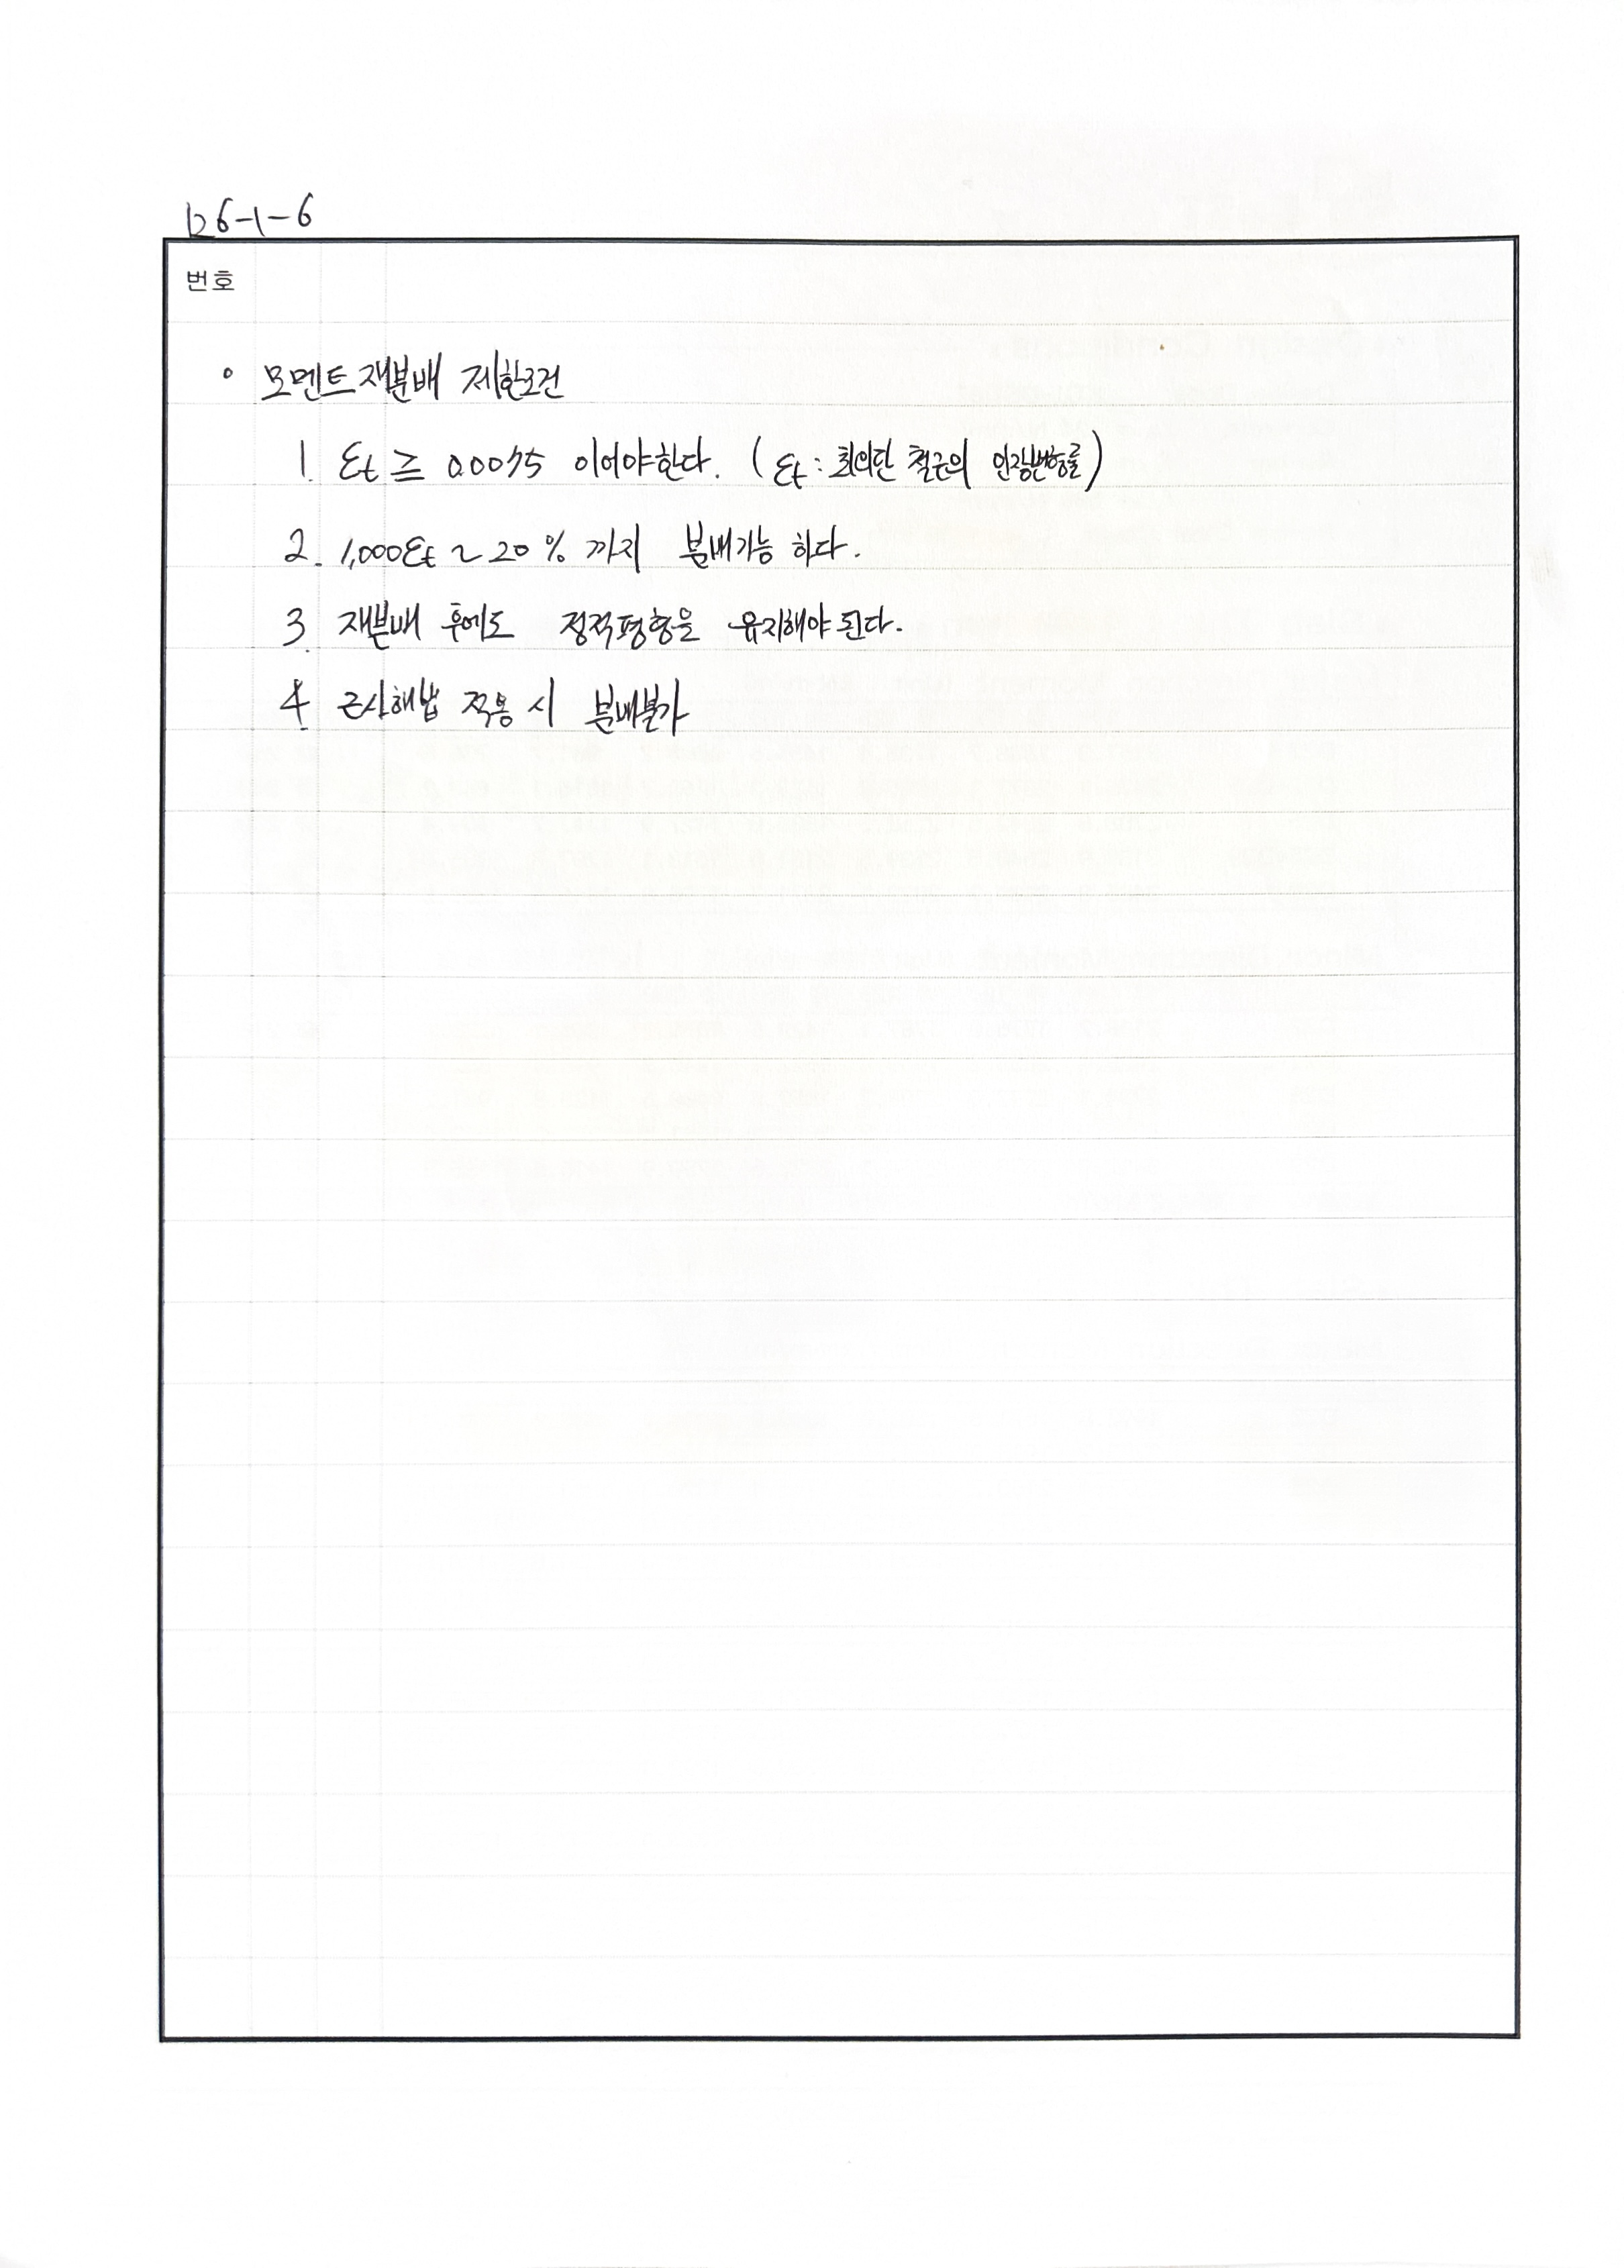 126-1-6
번호
° 모멘트재분배 제한조건
1. εt ≥ 0.0075 이어야한다. (εt : 최외단 철근의 인장변형률)
2. 1,000εt ~ 20 % 까지 분배가능 하다.
3. 재분배 후에도 정적평형을 유지해야 된다.
4. 근사해법 적용 시 분배불가